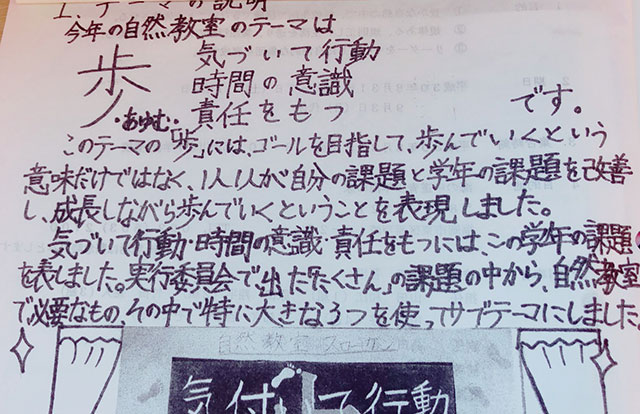 1.テーマの説明
今年の自然教室のテーマは
歩 気づいて行動
時間の意識
・あゆむ・ 責任をもつ です。
このテーマの「歩」には、ゴールを目指して、歩んでいくという
意味だけではなく、1人1人が自分の課題と学年の課題を改善
し、成長しながら歩んでいくということを表現しました。
気づいて行動・時間の意識・責任をもつには、この学年の課題
を表しました。実行委員会で出た「たくさん」の課題の中から、自然教室
で必要なもの、その中で特に大きな3つを使ってサブテーマにしました
自然教室 スローガン
気付いて行動